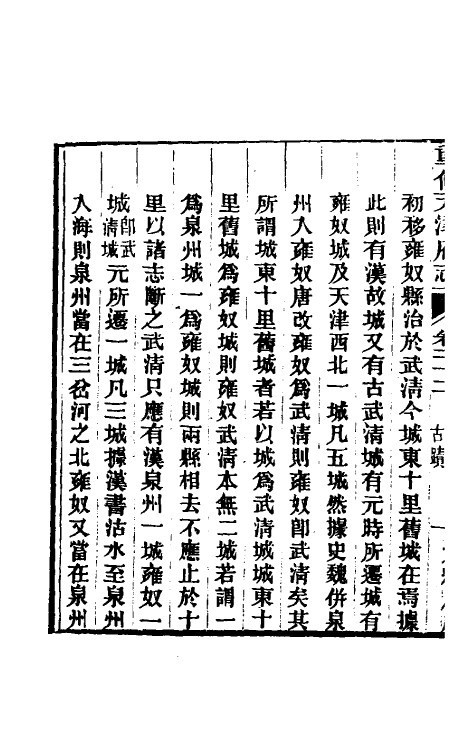 重修天津府志 卷二十二 古蹟 一
初移雍奴縣治於武清今城東十里舊城在焉據
此則有漢故城又有古武清城有元時所遷城有
雍奴城及天津西北一城凡五城然據史魏併泉
州入雍奴唐改雍奴爲武清則雍奴卽武清矣其
所謂城東十里舊城者若以城爲武清城城東十
里舊城爲雍奴城則雍奴武清本無二城若謂一
爲泉州城一爲雍奴城則兩縣相去不應止於十
里以諸志斷之武清只應有漢泉州一城雍奴一
城卽武清城元所遷一城凡三城據漢書沽水至泉州
入海則泉州當在三岔河之北雍奴又當在泉州